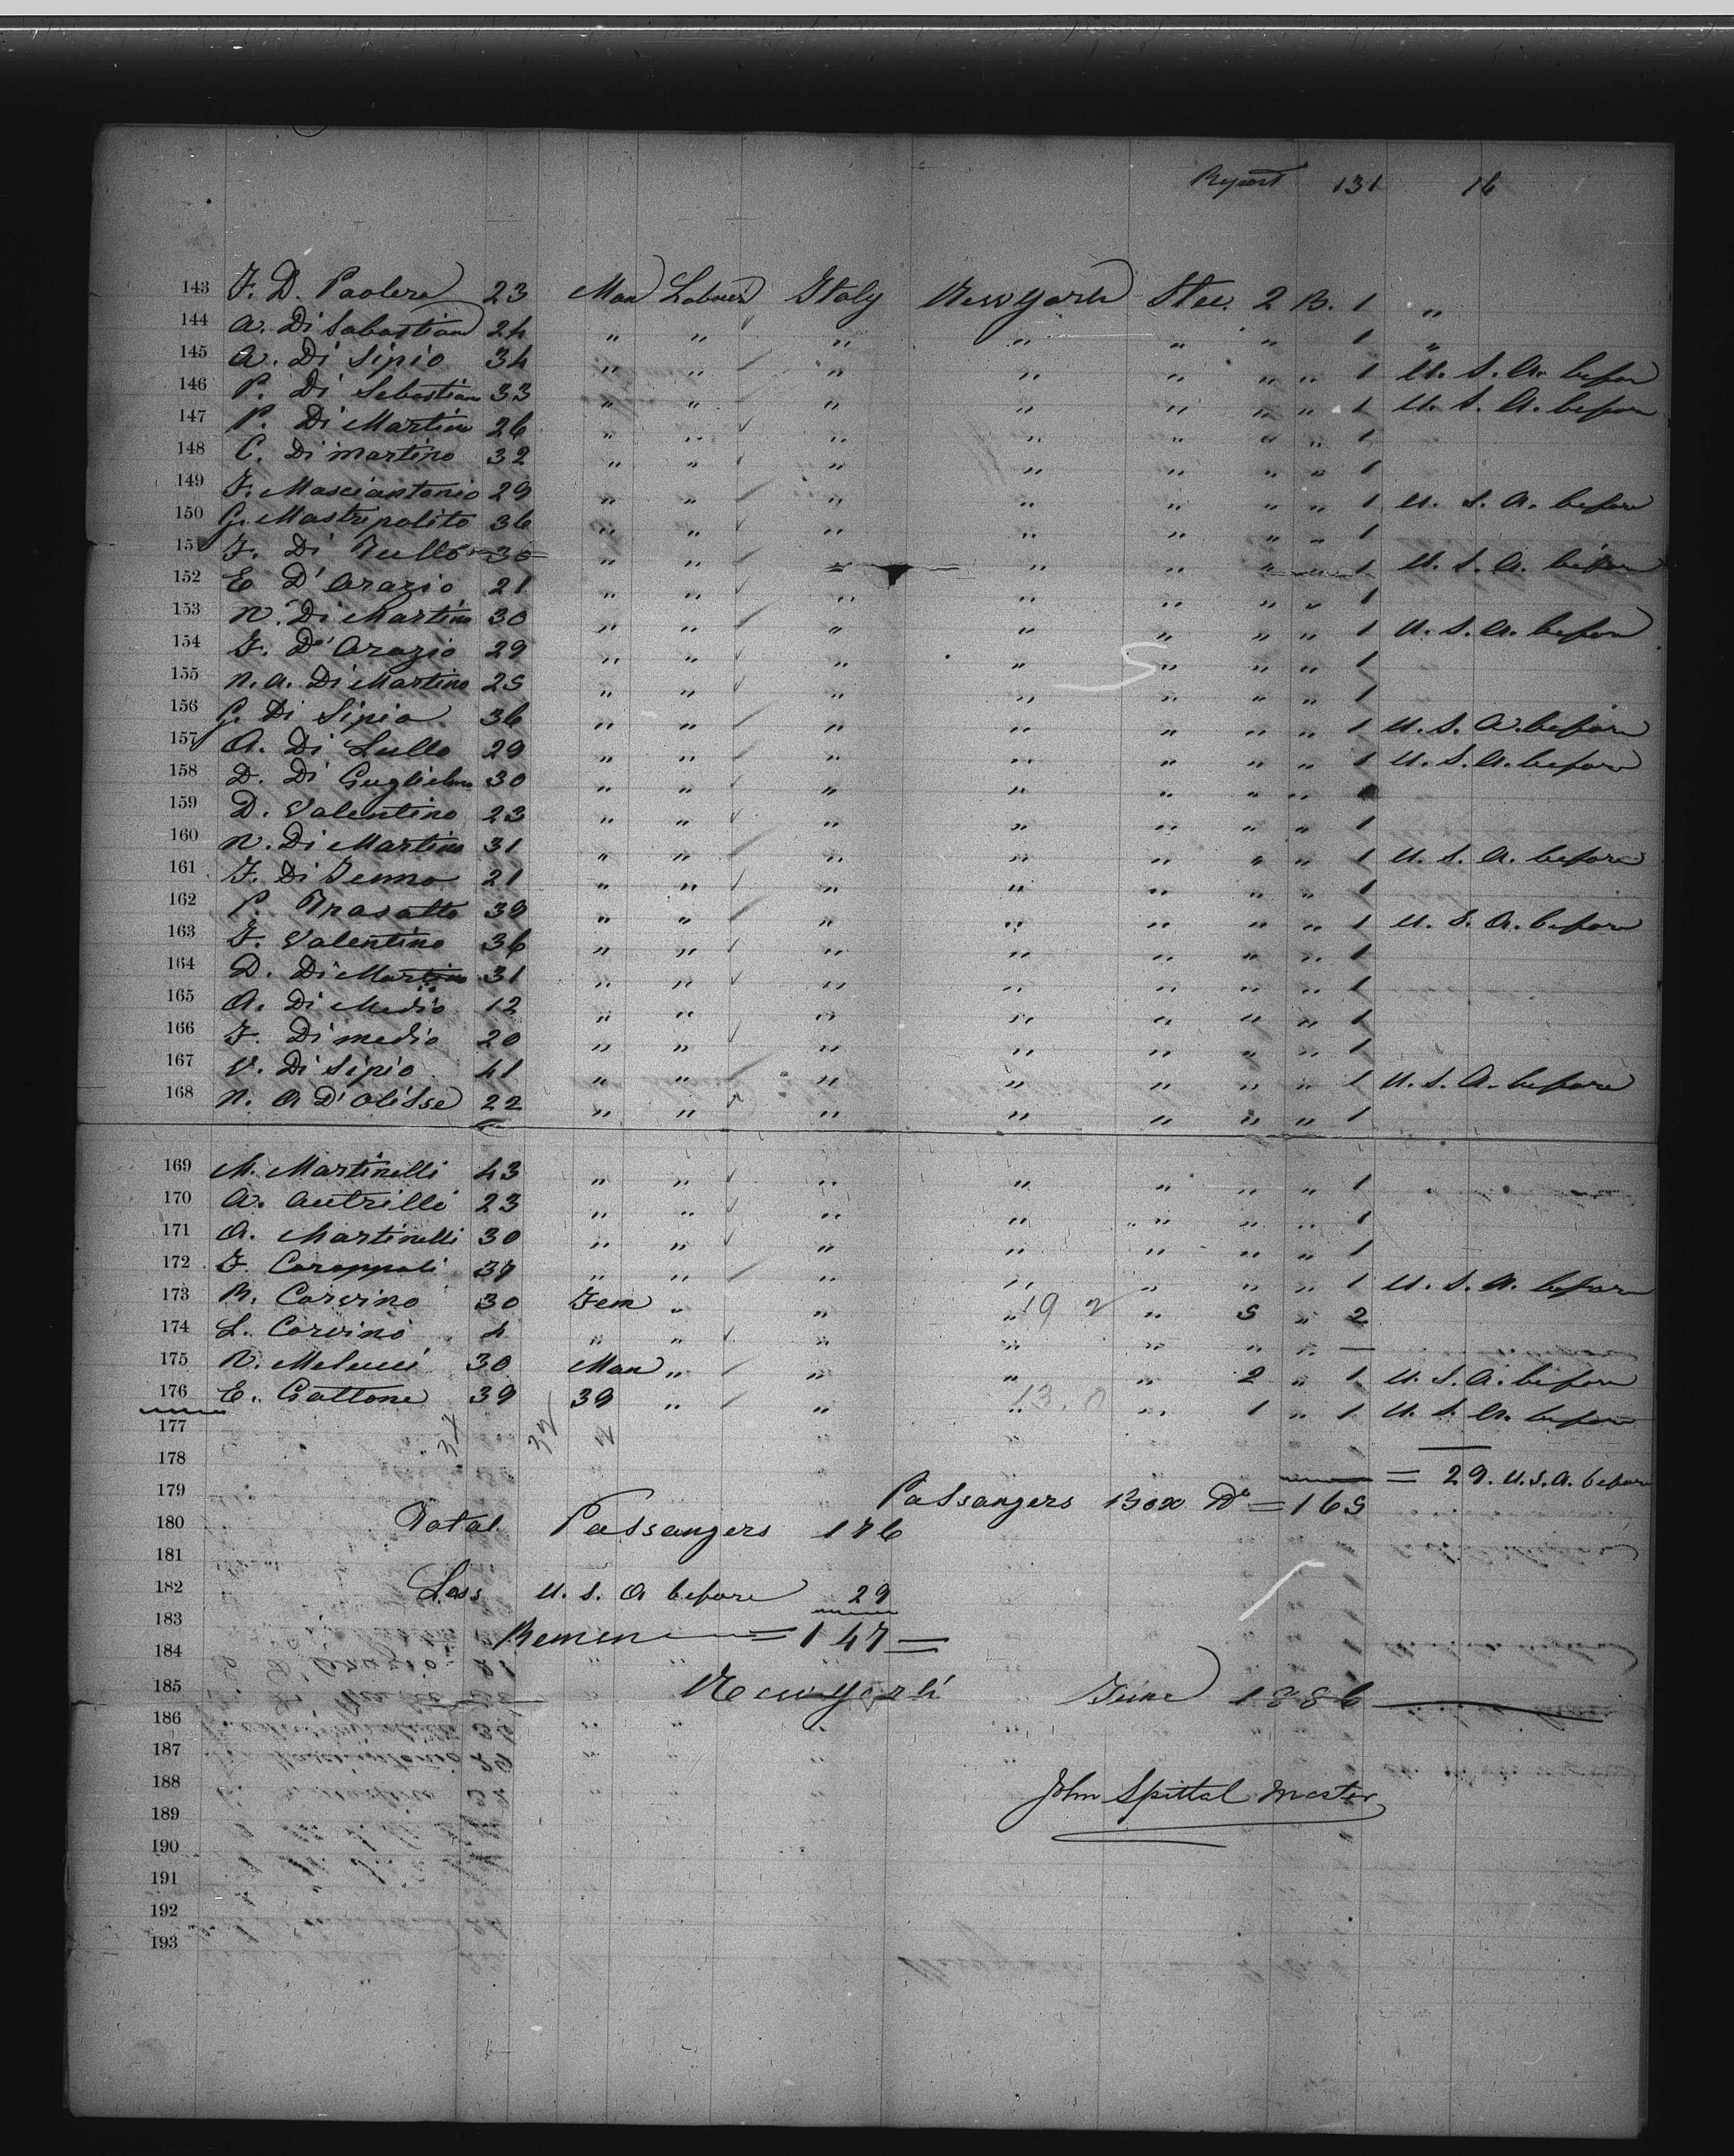 Report 131 16
143 F. D. Paolere 23 Man Labour Italy New York Stee. 2 B. 1 "
144 A. Di Sabastian 24 " " " " " " 1 "
145 A. Di Sipio 34 " " " " " " " 1 U. S. A. before
146 P. Di Sebastian 33 " " " " " " " 1 U. S. A. before
147 P. Di Martino 26 " " " " " " " 1
148 C. Di martino 32 " " " " " " " 1
149 F. Masciantonio 29 " " " " " " " 1 U. S. A. before
150 G. Mastripolito 36 " " " " " " " 1
151 F. Di Tullo 30 " " " " " " 1 U. S. A. before
152 E D'Orazio 21 " " " " " " " 1
153 N. Di Martino 30 " " " " " " " 1 U. S. A. before
154 F. D'Orazio 29 " " " " " " " 1
155 N. A. Di Martino 25 " " " " " " " 1
156 G. Di Sipio 36 " " " " " " " 1 U. S. A. before
157 A. Di Lullo 29 " " " " " " " 1 U. S. A. before
158 D. Di Guglielmo 30 " " " " " " " 1
159 D. Valentino 23 " " " " " " " 1
160 N. Di Martino 31 " " " " " " " 1 U. S. A. before
161 F. Di Jenno 21 " " " " " " " 1
162 P. Trasatto 39 " " " " " " " 1 U. S. A. before
163 F. Valentino 36 " " " " " " " 1
164 D. Di Martino 31 " " " " " " " 1
165 A. Di Medio 12 " " " " " " " 1
166 F. Di medio 20 " " " " " " " 1
167 V. Di Sipio 41 " " " " " " " 1 U. S. A. before
168 N. A D'Olisse 22 " " " " " " " 1
169 M. Martinelli 43 " " " " " " " 1
170 A. Autrilli 23 " " " " " " " 1
171 A. Martinelli 30 " " " " " " " 1
172 F. Carappoli 37 " " " " " " " 1 U. S. A. before
173 R. Corvino 30 Fem " " " " 5 " 2
174 L. Corvino 4 " " " " " " " —
175 N. Melucci 30 Man " " " " 2 " 1 U. S. A. before
176 E. Gattone 39 39 " " " " 1 " 1 U. S. A. before
177
178 = 29. U. S. A. before
179 Passangers Box Do = 165
180 Total Passangers 176
181
182 Less U. S. A before 29
183 Remen = 147 =
184
185 New York June 1886
186
187
188 John Spittal Master
189
190
191
192
193